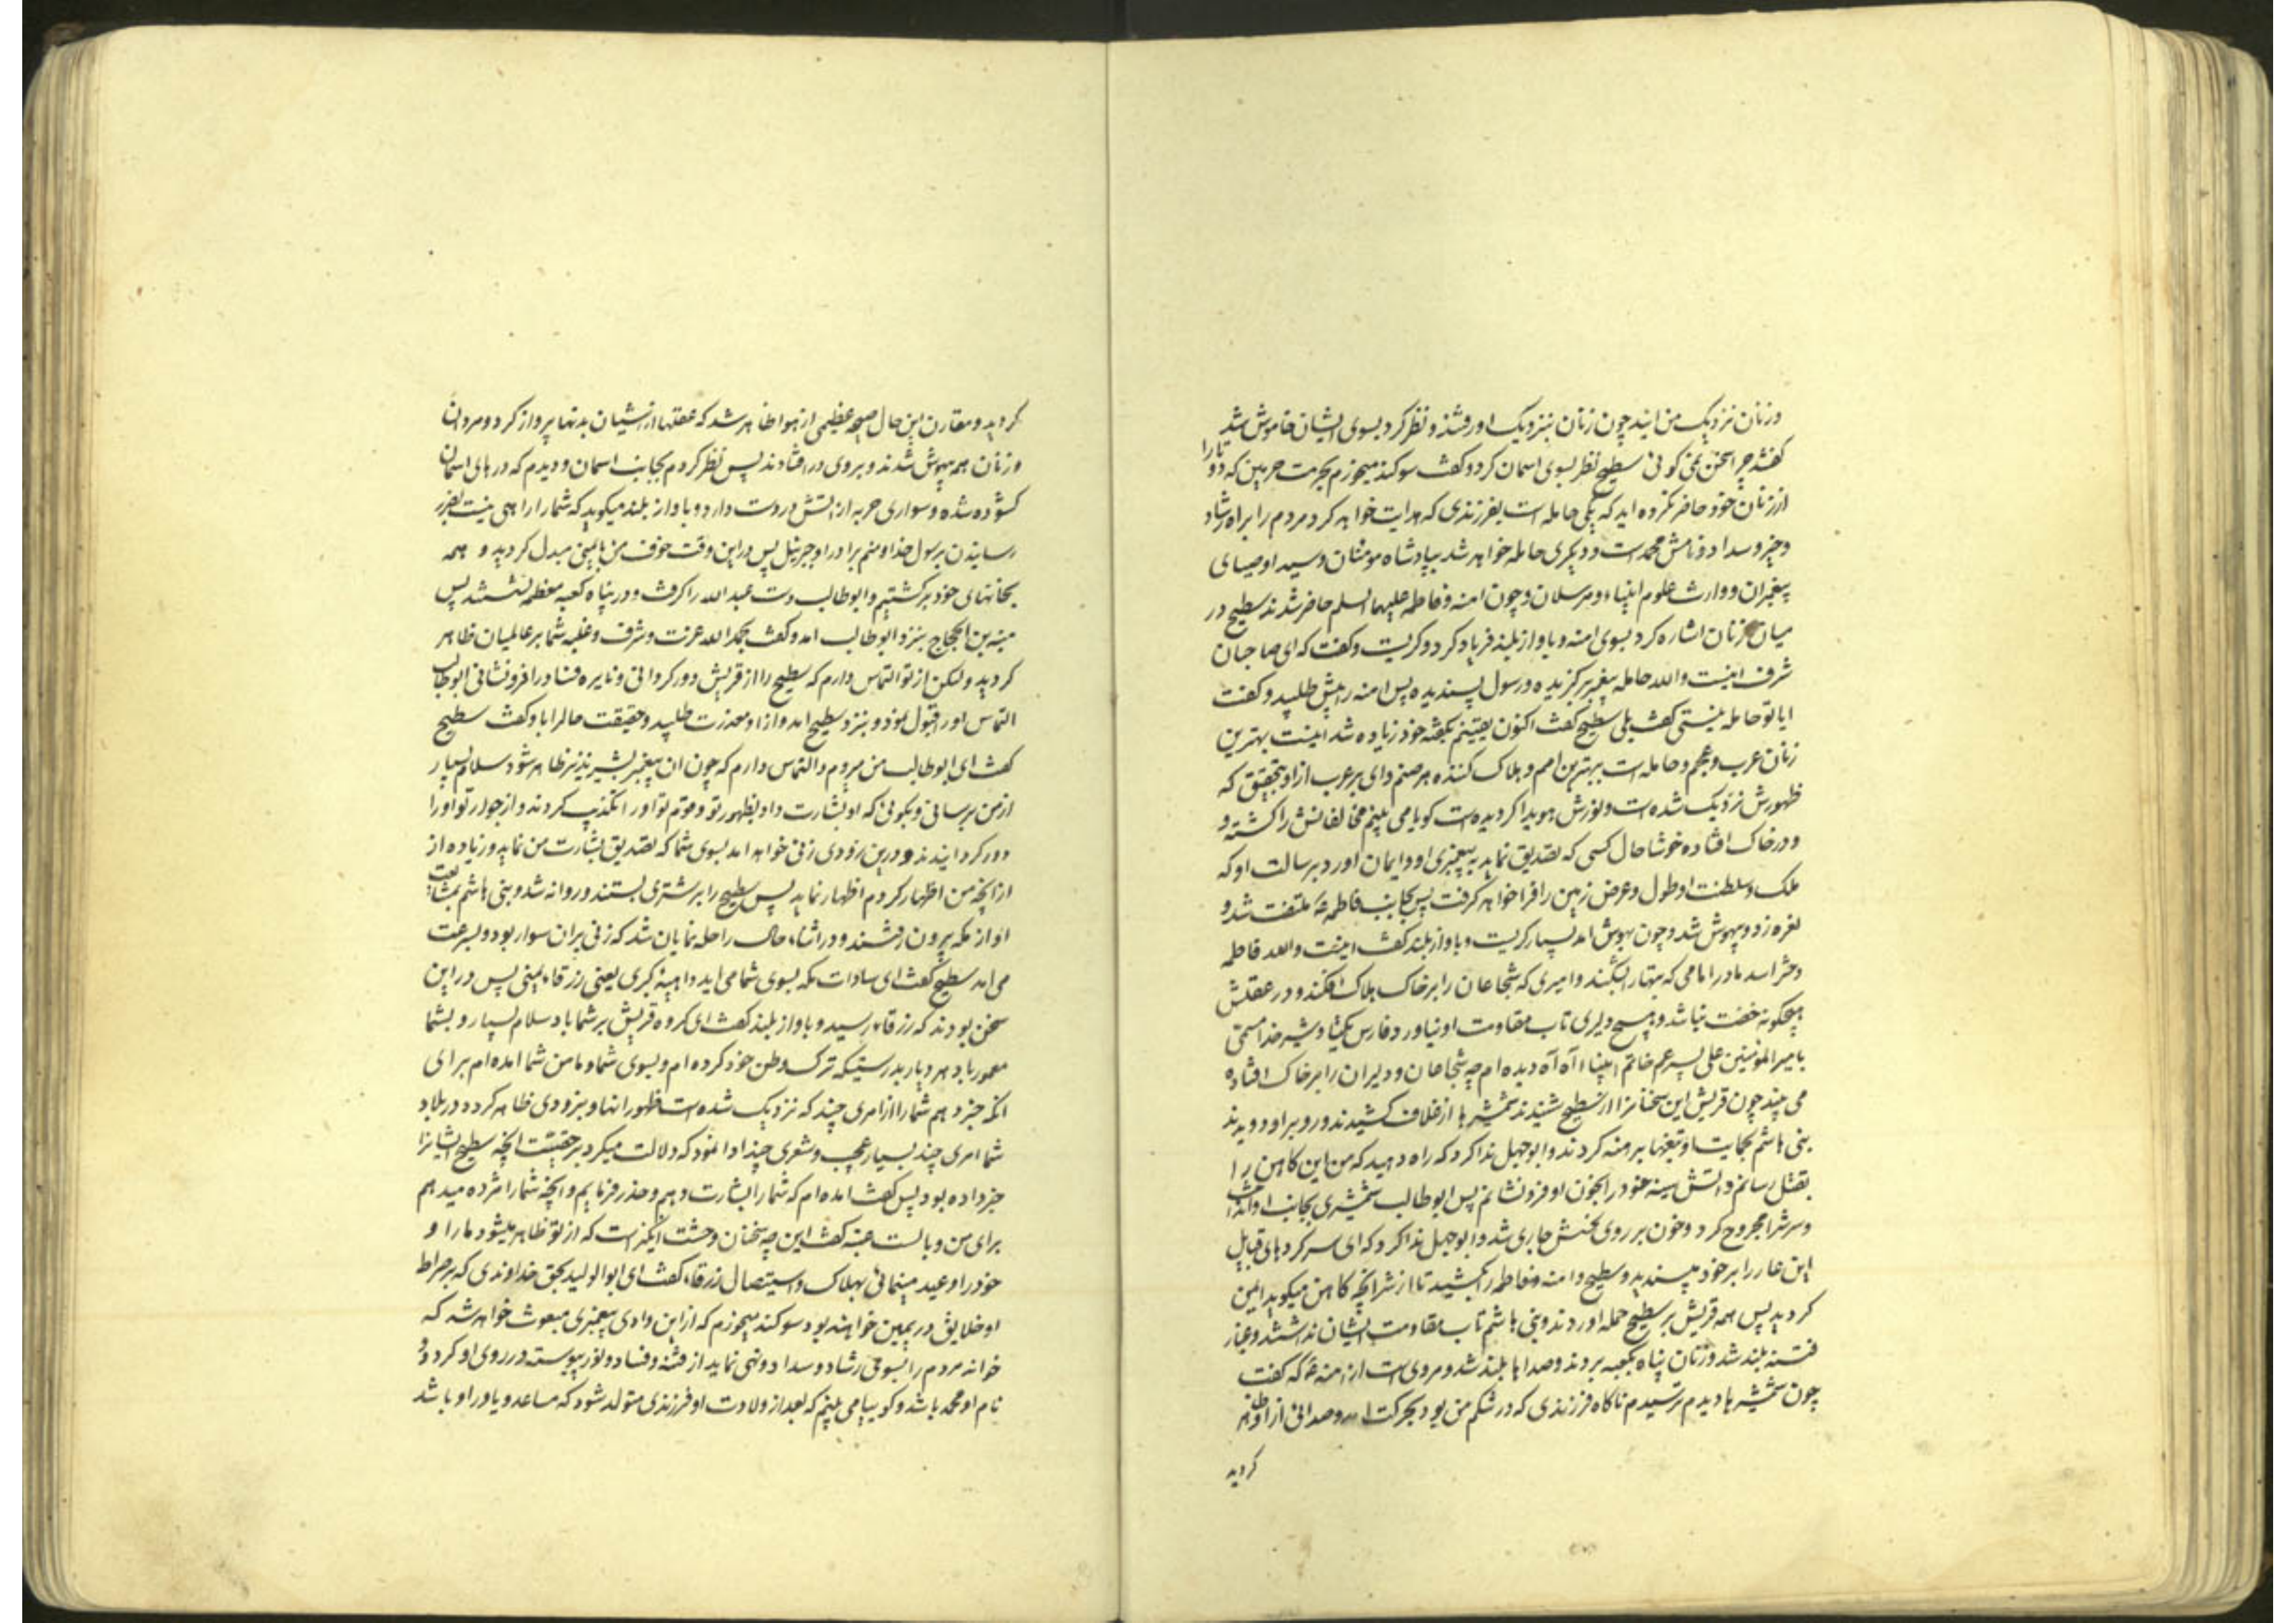 وزنان نزدیک من ایند چون زنان بنزدیک او رفتند و نظر کرد بسوی ایشان خاموش شد
گفتند چرا سخن نمی گوئی سطیح نظر بسوی اسمان کرد و گفت سوکند میخورم بحرمت حرمین که دو تا را
از زنان خود حاضر نکرده اید که یکی حامله است بفرزندی که هدایت خواهد کرد مردم را براه رشاد
وخیر و سداد و نامش محمد است و دیکری حامله خواهد شد بپادشاه مومنان و سید اوصیای
پیغمبران و وارث علوم انبیاء و مرسلان و چون امنه و فاطمه علیهما السلم حاضر شدند سطیح در
میان زنان اشاره کرد بسوی امنه و باواز بلند فریاد کرد و کریست و گفت که ای صاحبان
شرف اینست والله حامله پیغمبر برکزیده و رسول پسندیده پس امنه را پیش طلبید و کفت
ایا تو حامله نیستی کفت بلی سطیح کفت اکنون یقینم بکفته خود زیاده شد اینست بهترین
زنان عرب و عجم و حامله است ببهترین امم و هلاک کننده هر صنم وای بر عرب از او بتحقیق که
ظهورش نزدیک شده است و نورش هویدا کردیده است کویا می بینم مخالفانش را کشته و
و در خاک افتاده خوشا حال کسی که تصدیق نماید به پیغمبری او و ایمان اورد برسالت او که
ملک و سلطنت او طول و عرض زمین را فرا خواهد کرفت پس بجانب فاطمه ع ملتفت شد و
نعره زد و بیهوش شد و چون بهوش امد بسیار کریست و باواز بلند کفت اینست والله فاطمه
دختر اسد مادر امامی که بتها را بشکند و امیری که شجاعان را بر خاک هلاک افکند و در عقلش
هیچکونه خفت نباشد و هیچ دلیری تاب مقاومت او نیاورد فارس یکتا و شیر خدا مسمی
بامیر المؤمنین علی پسر عم خاتم انبیاء اه اه دیده ام چه شجاعان و دلیران را بر خاک افتاده
می بیند چون قریش این سخنانرا از سطیح شنیدند شمشیرها از غلاف کشیدند و رو براو دویدند
بنی هاشم بحمایت او تیغها برهنه کردند و ابوجهل ندا کرد که راه دهید که من این کاهن را
بقتل رسانم و اتش سینه خود را بخون او فرونشانم پس ابوطالب شمشیری بجانب او انداخت
و سرش را مجروح کرد و خون بر روی نحسش جاری شد و ابوجهل ندا کرد که ای سرکردهای قبایل
این عار را بر خود مپسندید و سطیح و امنه و فاطمه را بکشید تا از شر انچه کاهن میکوید ایمن
کردید پس همه قریش بر سطیح حمله اوردند و بنی هاشم تاب مقاومت ایشان نداشتند و غبار
فتنه بلند شد و زنان پناه بکعبه بردند و صداها بلند شد و مروی است از امنه ع که کفت
چون شمشیرها دیدم ترسیدم ناکاه فرزندی که در شکم من بود بحرکت امد و صدائی از او ظاهر
کردید
کردید و مقارن این حال صیحه عظیمی از هوا ظاهر شد که عقلها از اشیان بدنها پرواز کرد و مردان
و زنان همه بیهوش شدند و بروی در افتادند پس نظر کردم بجانب اسمان و دیدم که درهای اسمان
کشوده شده و سواری حربه از اتش در دست دارد و باواز بلند میکوید که شما را راهی نیست بضرر
رسانیدن برسول خدا و منم برادر او جبرئیل پس در این وقت خوف من بایمنی مبدل کردید و همه
بخانهای خود برکشتیم و ابوطالب دست عبد الله را کرفت و در پناه کعبه معظمه نشستند پس
منبه بن الحجاج بنزد ابوطالب امد و کفت بحمد الله عزت و شرف و غلبه شما بر عالمیان ظاهر
کردید ولیکن از تو التماس دارم که سطیح را از قریش دور کردانی و نایره فساد را فرونشانی ابوطالب
التماس او را قبول نمود و بنزد سطیح امد و از او معذرت طلبید و حقیقت حال را باو کفت سطیح
کفت ای ابوطالب من میروم و التماس دارم که چون ان پیغمبر بشیر نذیر ظاهر شود سلام بسیار
از من برسانی و بکوئی که او بشارت داد بظهور تو و قوم تو او را تکذیب کردند و از جوار تو او را
دور کردانیدند و درین زودی زنی خواهد امد بسوی شما که تصدیق بشارت من نماید و زیاده از
از انچه من اظهار کردم اظهار نماید پس سطیح را بر شتری بستند و روانه شد و بنی هاشم بمشایعت
او از مکه بیرون رفتند و در اثناء حال راحله نمایان شد که زنی بران سوار بود و بسرعت
می امد سطیح کفت ای سادات مکه بسوی شما می اید داهیه کبری یعنی زرقاء یمنی پس در این
سخن بودند که زرقاء رسید و باواز بلند کفت ای کروه قریش بر شما باد سلام بسیار و بشما
معمور باد هر دیار بدرستیکه ترک وطن خود کرده ام و بسوی شما و مامن شما امده ام برای
انکه خبر دهم شما را از امری چند که نزدیک شده است ظهور انها و بزودی ظاهر کردد در بلاد
شما امری چند بسیار عجیب و شعری چند ادا نمود که دلالت میکرد بر حقیقت انچه سطیح ایشانرا
خبر داده بود پس کفت امده ام که شما را بشارت دهم و حذر فرمایم و انچه شما را مژده میدهم
برای من وبالست عتبه کفت این چه سخنان وحشت انگیز است که از تو ظاهر میشود ما را و
خود را وعید مینمائی بهلاک و استیصال زرقاء کفت ای ابو الولید بحق خداوندی که بر صراط
او خلایق در کمین خواهند بود سوکند میخورم که از این وادی پیغمبری مبعوث خواهد شد که
خواند مردم را بسوی رشاد و سداد و نهی نماید از فتنه و فساد و نور پیوسته در روی او کردد و
نام او محمد باشد و کویا می بینم که بعد از ولادت او فرزندی متولد شود که مساعد و یاور او باشد